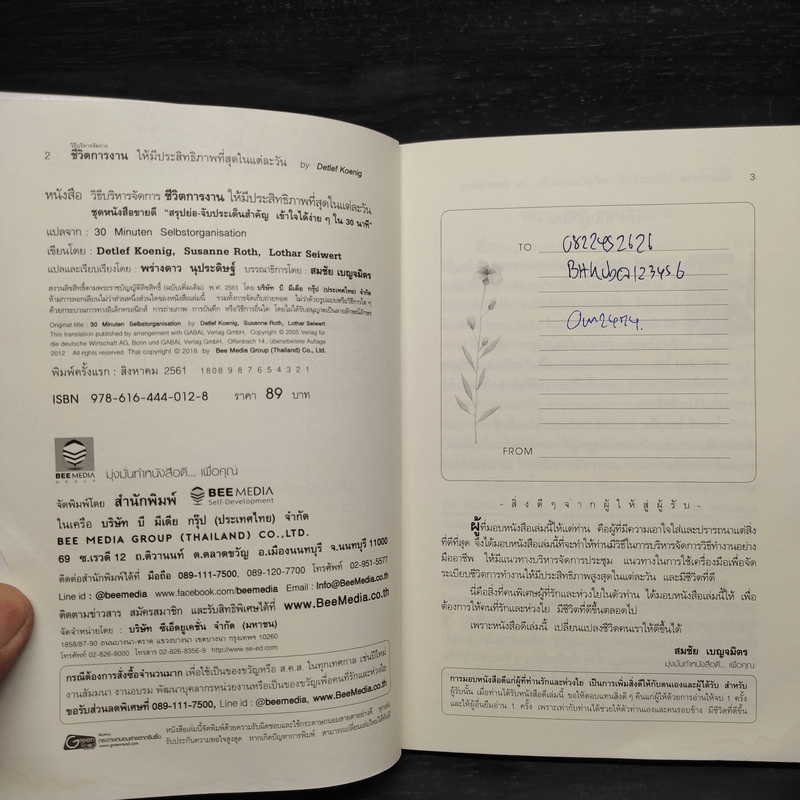 2
วิธีบริหารจัดการ
ชีวิตการงาน ให้มีประสิทธิภาพที่สุดในแต่ละวัน by Detlef Koenig
หนังสือ วิธีบริหารจัดการ ชีวิตการงาน ให้มีประสิทธิภาพที่สุดในแต่ละวัน
ชุดหนังสือขายดี "สรุปย่อ-จับประเด็นสำคัญ เข้าใจได้ง่าย ๆ ใน 30 นาที"
แปลจาก : 30 Minuten Selbstorganisation
เขียนโดย : Detlef Koenig, Susanne Roth, Lothar Seiwert
แปลและเรียบเรียงโดย : พร่างดาว นุประดิษฐ์ บรรณาธิการโดย : สมชัย เบญจมิตร
สงวนลิขสิทธิ์ตามพระราชบัญญัติลิขสิทธิ์ (ฉบับเพิ่มเติม) พ.ศ. 2561 โดย บริษัท บี มีเดีย กรุ๊ป (ประเทศไทย) จำกัด
ห้ามการลอกเลียนไม่ว่าส่วนหนึ่งส่วนใดของหนังสือเล่มนี้ รวมทั้งการจัดเก็บถ่ายทอด ไม่ว่าด้วยรูปแบบหรือวิธีการใด ๆ
ด้วยกระบวนการทางอิเล็กทรอนิกส์ การถ่ายภาพ การบันทึก หรือวิธีการอื่นใด โดยไม่ได้รับอนุญาตเป็นลายลักษณ์อักษร
Original title : 30 Minuten Selbstorganisation by Detlef Koenig, Susanne Roth, Lothar Seiwert
This translation published by arrangement with GABAL Verlag GmbH. Copyright © 2005 Verlag für
die deutsche Wirtschaft AG, Bonn und GABAL Verlag GmbH, Offenbach 14., überarbeitete Auflage
2012 All rights reserved. Thai copyright © 2018 by Bee Media Group (Thailand) Co., Ltd.
พิมพ์ครั้งแรก : สิงหาคม 2561 1808 9 8 7 6 5 4 3 2 1
ISBN 978-616-444-012-8 ราคา 89 บาท
BEE MEDIA
GROUP
มุ่งมั่นทำหนังสือดี... เพื่อคุณ
จัดพิมพ์โดย สำนักพิมพ์ BEE MEDIA
Self-Development
ในเครือ บริษัท บี มีเดีย กรุ๊ป (ประเทศไทย) จำกัด
BEE MEDIA GROUP (THAILAND) CO.,LTD.
69 ซ.เรวดี 12 ถ.ติวานนท์ ต.ตลาดขวัญ อ.เมืองนนทบุรี จ.นนทบุรี 11000
ติดต่อสำนักพิมพ์ได้ที่ มือถือ 089-111-7500, 089-120-7700 โทรสาร 02-951-5577
Line id : @beemedia www.facebook.com/beemedia Email : Info@BeeMedia.co.th
ติดตามข่าวสาร สมัครสมาชิก และรับสิทธิพิเศษได้ที่ www.BeeMedia.co.th
จัดจำหน่ายโดย : บริษัท ซีเอ็ดยูเคชั่น จำกัด (มหาชน)
1858/87-90 ถนนบางนา-ตราด แขวงบางนา เขตบางนา กรุงเทพฯ 10260
โทรศัพท์ 02-826-8000 โทรสาร 02-826-8356-9 http://www.se-ed.com
กรณีต้องการสั่งซื้อจำนวนมาก เพื่อใช้เป็นของขวัญหรือ ส.ค.ส. ในทุกเทศกาล เช่นปีใหม่
งานสัมมนา งานอบรม พัฒนาบุคลากรหน่วยงานหรือเป็นของขวัญเพื่อคนที่รักและห่วงใย
ขอรับส่วนลดพิเศษที่ 089-111-7500, Line id : @beemedia, www.BeeMedia.co.th
Green
กระดาษถนอมสายตากรีนรี้ด
www.greenread.com
หนังสือเล่มนี้จัดพิมพ์ด้วยความรับผิดชอบและใช้กระดาษถนอมสายตาอย่างดี ทุกเล่ม
รับประกันความพอใจสูงสุด หากเกิดปัญหาการพิมพ์ สามารถเปลี่ยนเล่มใหม่ได้ทันที
3
TO 0822452626
123456
FROM
- สิ่งดีๆจากผู้ให้สู่ผู้รับ -
ผู้ที่มอบหนังสือเล่มนี้ให้แต่ท่าน คือผู้ที่มีความเอาใจใส่และปรารถนาแต่สิ่ง
ที่ดีที่สุด จึงได้มอบหนังสือเล่มนี้ที่จะทำให้ท่านมีวิธีในการบริหารจัดการวิธีทำงานอย่าง
มืออาชีพ ให้มีแนวทางบริหารจัดการประชุม แนวทางในการใช้เครื่องมือเพื่อจัด
ระเบียบชีวิตการทำงานให้มีประสิทธิภาพสูงสุดในแต่ละวัน และมีชีวิตที่ดี
นี่คือสิ่งที่คนพิเศษผู้ที่รักและห่วงใยในตัวท่าน ได้มอบหนังสือเล่มนี้ให้ เพื่อ
ต้องการให้คนที่รักและห่วงใย มีชีวิตที่ดีขึ้นตลอดไป
เพราะหนังสือดีเล่มนี้ เปลี่ยนแปลงชีวิตคนเราให้ดีขึ้นได้
สมชัย เบญจมิตร
มุ่งมั่นทำหนังสือดี... เพื่อคุณ
การมอบหนังสือดีแก่ผู้ที่ท่านรักและห่วงใย เป็นการเพิ่มสิ่งดีให้กับตนเองและผู้ได้รับ สำหรับ
ผู้รับนั้น เมื่อท่านได้รับหนังสือดีเล่มนี้ ขอให้ตอบแทนสิ่งดี ๆ คืนแก่ผู้ให้ด้วยการอ่านให้จบ 1 ครั้ง
และให้ผู้อื่นยืมอ่าน 1 ครั้ง เพราะเท่ากับท่านได้ช่วยให้ตัวท่านเองและคนรอบข้าง มีชีวิตที่ดีขึ้น